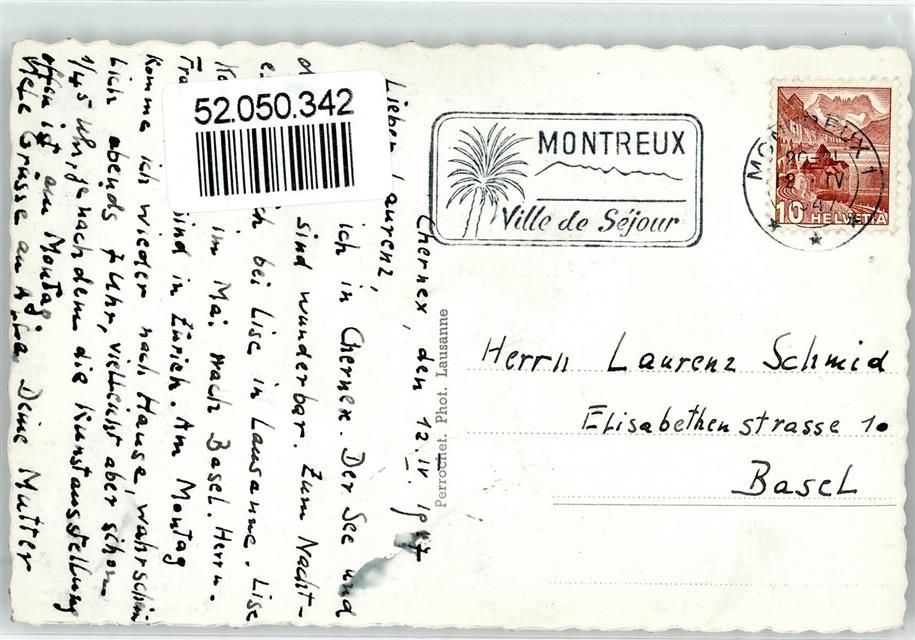 52.050.342
MONTREUX
Ville de Séjour
MONTREUX 1
IV
47
10
HELVETIA
Perrochet. Phot. Lausanne
Herrn Laurenz Schmid
Elisabethenstrasse 10
Basel
Chernex, den 12. IV. 1947
Lieber Laurenz,
ich in Chernex. Der See und
sind wunderbar. Zum Nacht-
bei Lise in Lausanne. Lise
im Mai nach Basel. Herrn-
sind in Zürich. Am Montag
komme ich wieder nach Hause, wahrschein
lich abends 7 Uhr, vielleicht aber schon
1/45 Uhr, je nachdem die Kunstausstellung
offen ist am Montag.
Viele Grüsse an Deine Mutter